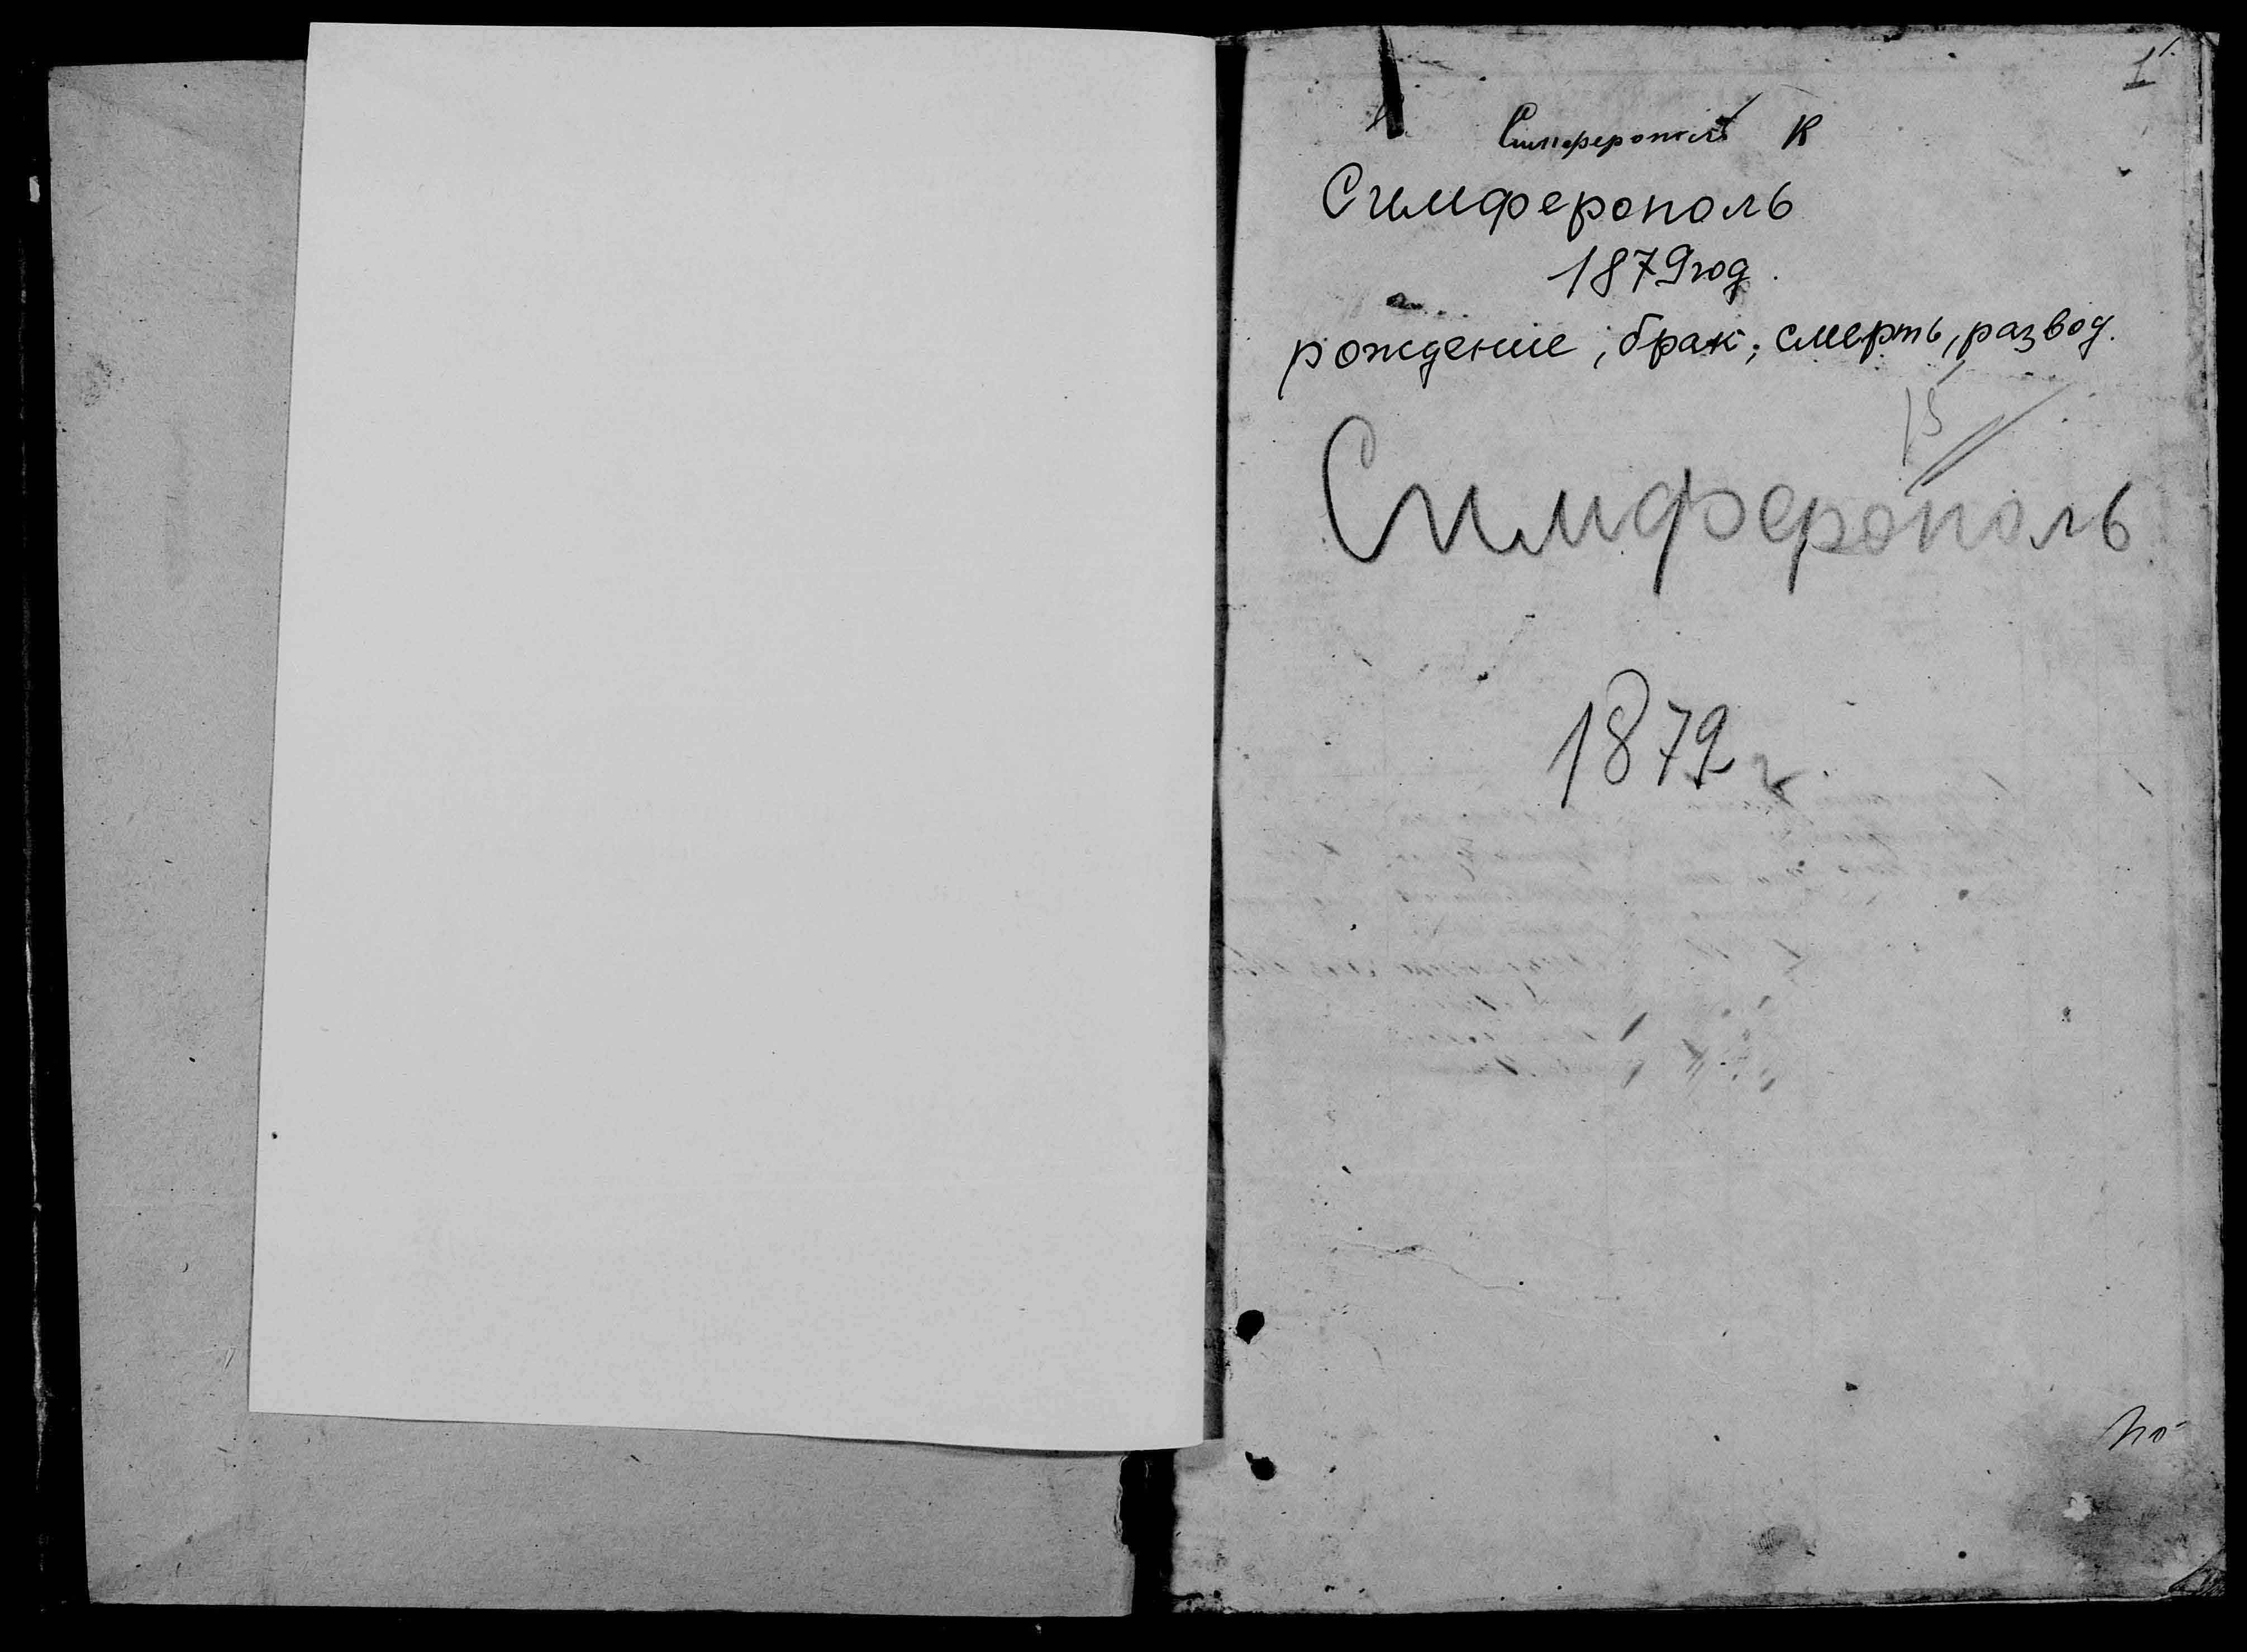 1
Симферополь К
Симферополь
1879 год.
рождение, брак, смерть, развод.
15
Симферополь
1879 г.